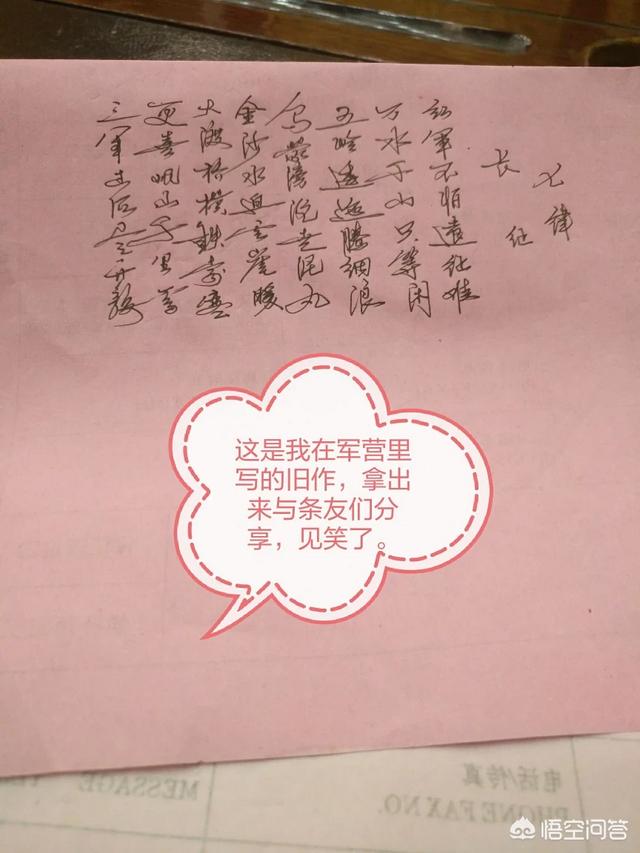 七律
长征
红军不怕远征难
万水千山只等闲
五岭逶迤腾细浪
乌蒙磅礴走泥丸
金沙水拍云崖暖
大渡桥横铁索寒
更喜岷山千里雪
三军过后尽开颜
这是我在军营里
写的旧作，拿出
来与条友们分
享，见笑了。
电话/传真
PHONE/FAX NO.
MESSAGE
悟空问答